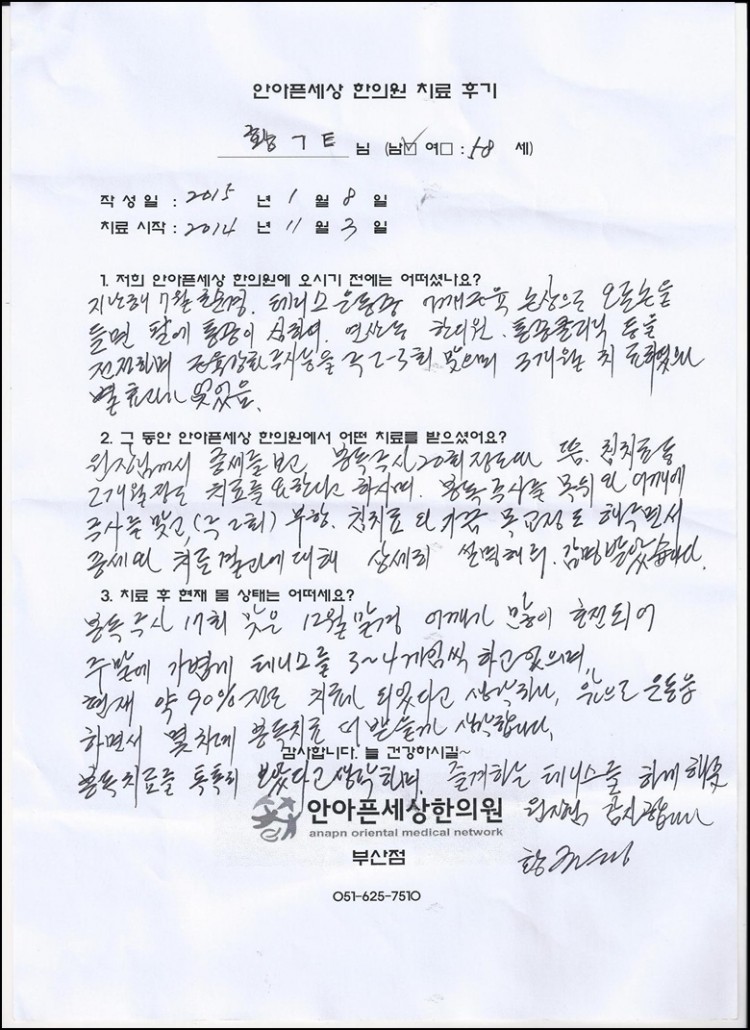 안아픈세상 한의원 치료 후기
황 ㄱ ㅌ 님 (남☑ 여□ : 58 세)
작 성 일 : 2015 년 1 월 8 일
치료 시작 : 2014 년 11 월 3 일
1. 저희 안아픈세상 한의원에 오시기 전에는 어떠셨나요?
지난해 7월 한순경. 테니스 운동중 어깨근육 손상으로 오른손을
들면 팔에 통증이 심하여. 연산동 한의원. 통증클리닉 등을
전전하며 근육강화주사등을 각 2-3회 맞으며 3개월은 치료하였으나
별 효과가 없었음.
2. 그 동안 안아픈세상 한의원에서 어떤 치료를 받으셨어요?
원장님께서 증세를 보고, 봉독주사 20회 정도와 뜸. 침치료등
2개월 정도 치료를 요한다고 하시며. 봉독주사를 목뒤와 어깨에
주사를 맞고, (주 2회) 부항. 침치료와 가끔 목교정도 해주면서
증세와 치료결과에 대해 상세히 설명해줘. 감명받았습니다.
3. 치료 후 현재 몸 상태는 어떠세요?
봉독주사 17회 맞은 12월 말경 어깨가 많이 호전되어
주말에 가볍게 테니스를 3~4게임씩 하고 있으며,
현재 약 90% 정도 치료가 되었다고 생각하나, 앞으로 운동을
하면서 몇차례 봉독치료 더 받을까 생각합니다.
감사합니다. 늘 건강하시길~
봉독치료를 톡톡히 보았다고 생각하며. 즐겨하는 테니스를 하게 해준
원장님 감사합니다
안아픈세상한의원
anapn oriental medical network
황
부산점
051-625-7510